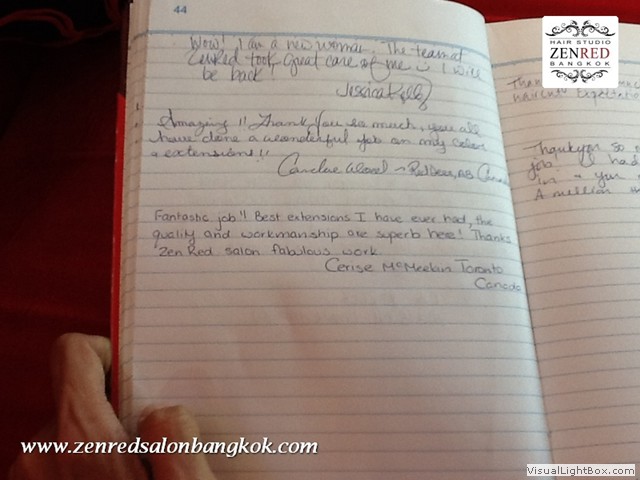 44
Wow! I am a new woman. The team at
ZenRed took great care of me I will
be back
Jessica Kelly
Amazing!! Thank you so much, you all
have done a wonderful job on my color
+ extensions!!
Candace ~ Red Deer, AB Canada
Fantastic job!! Best extensions I have ever had, the
quality and workmanship are superb here! Thanks
Zen Red salon fabulous work
Cerise McMeekan Toronto
Canada
HAIR STUDIO
ZENRED
BANGKOK
Thank
haircut
Thankyou so
job I had
in + you
A million
www.zenredsalonbangkok.com
VisualLightBox.com